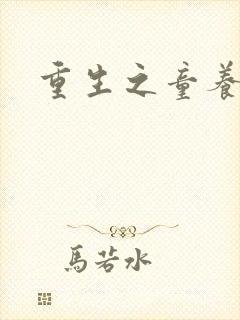 重生之童養
馬若水